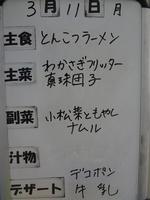 3月11日月
主食 とんこつラーメン
主菜 わかさぎフリッター
真珠団子
副菜 小松菜ともやし
ナムル
汁物
デザート デコポン
牛乳